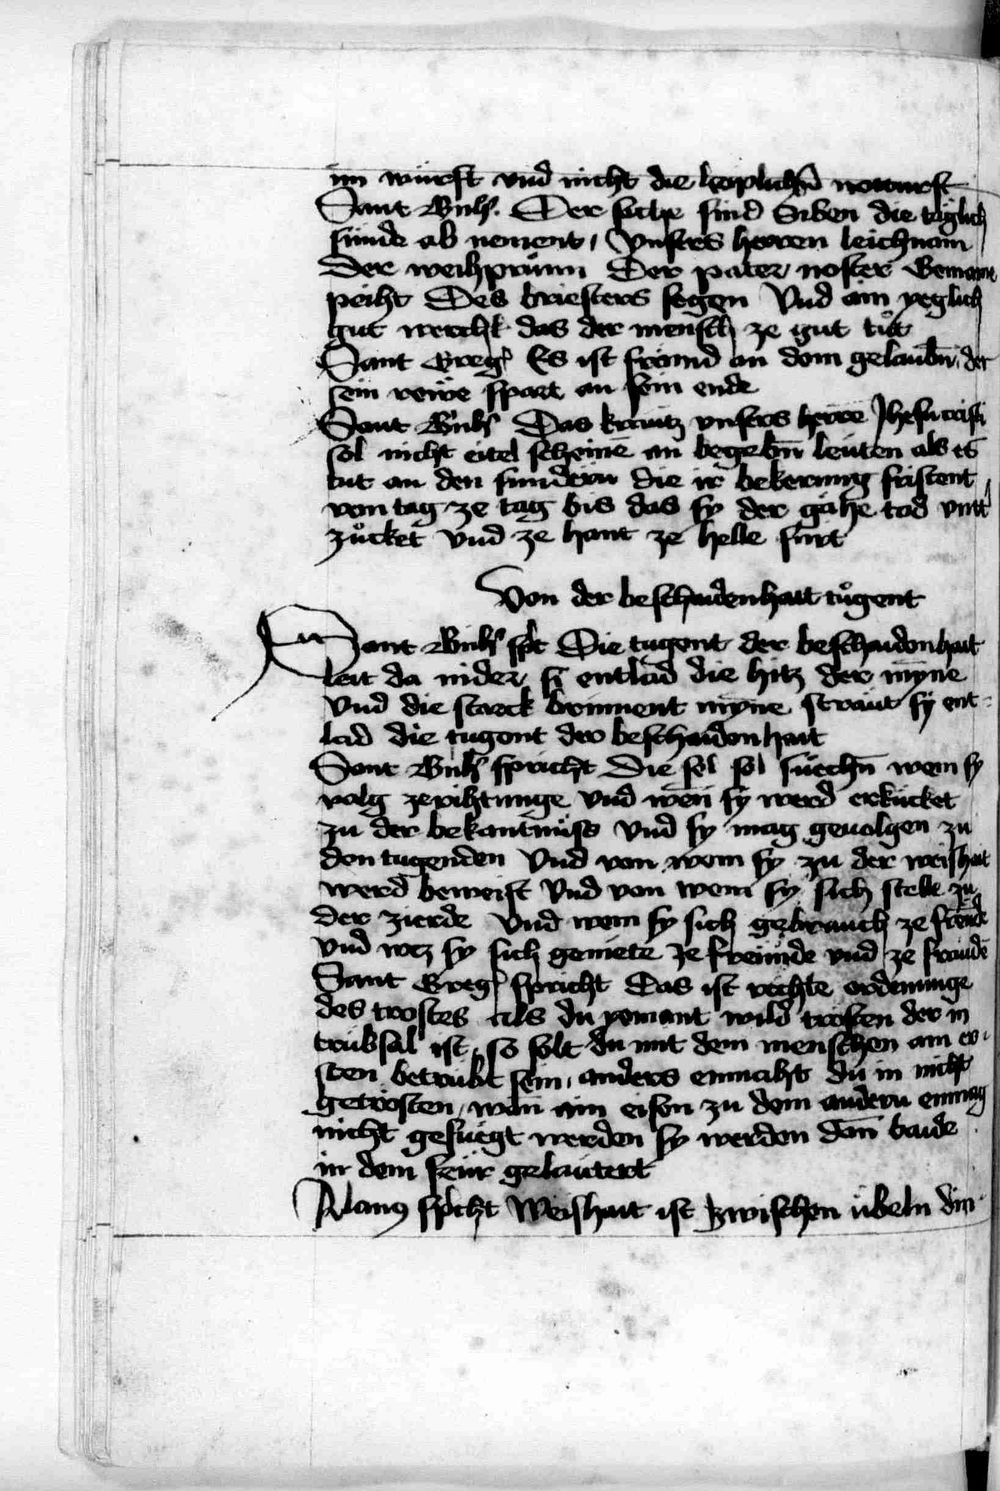 im würft vnd nicht die leiplichn̄ noturft
Sant Bnh̄. Der sache sind Siben die täglich
sünde ab nement, Vnsers herren leichnam
der weihprůnn Der pater noster Gemaine
peiht Des briesters segen Vnd ain yeglich
gut werchk das der mensch ze gut tůt
Sant Greg̉ Es ist främd an dem gelaubn̄ der
sein rewe spart an sein ende
Sant Bnh̄ Das kräutz vnsers herre Jhesu cristi
sol nicht eitel scheinē an begebn̄ leuten als es
tut an den sundern die ir bekerung fristent
von tag ze tag bis das sy der gähe tod vnt̉
zůcket vnd ze hant ze helle fürt
Von der beschaidenhait tůgent
Sant Bnh̄ spt Die tugent der beschaidenhait
leit da nider si entlad die hitz der myne
Vnd die starck brinnent myne sträut sy ent
lad die tugent der beschaidenhait
Sant Bnh̄ spricht Die sel sol suechn̄ wem sy
volg zerihtunge vnd wen sy werd erkucket
zu der bekantnüss vnd sy mag geuolgen zu
den tugenden Vnd von wem sy zu der weishait
werd beweist Vnd von wem sy sich stelle zu
der zierde Vnd wem sy sich gebrauch ze freude
vnd wez sy sich geniete ze freunde vnd ze fräude
Sant Greg̉ spricht Das ist rechte ordenunge
des trostes als du yemant wild trösten der in
trübsal ist, so solt du mit dem menschen am er
sten betrübt sein, anders enmaht du in nicht
getrösten, wan ain eisen zu dem andern enmag
nicht gefuegt werden sy werden dan̄ baide
in dem feür gelautert
Alanus spricht Weishait ist zwischen übeln din